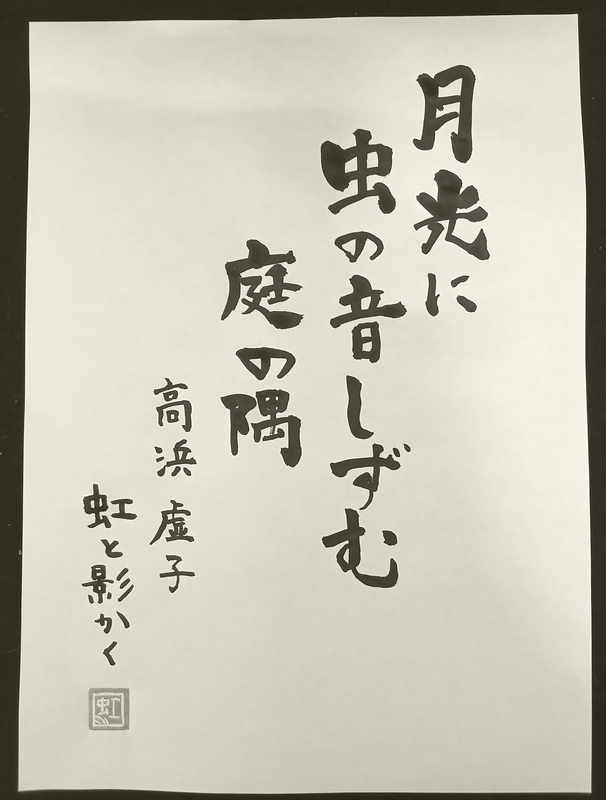 月光に
虫の音しずむ
庭の隅
高浜虚子
虹と影かく
虹